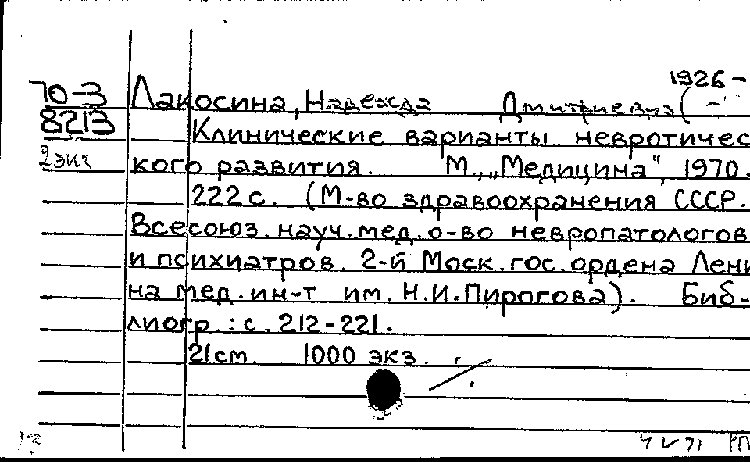 1926-
70-3 Лакосина, Надежда Дмитриевна (-
8213 Клинические варианты невротичес
2экз кого развития. М., „Медицина", 1970.
222 с. (М-во здравоохранения СССР.
Всесоюз. науч. мед. о-во невропатологов
и психиатров. 2-й Моск. гос. ордена Лени
на мед. ин-т им. Н.И.Пирогова). Биб-
лиогр.: с. 212-221.
21см. 1000 экз.